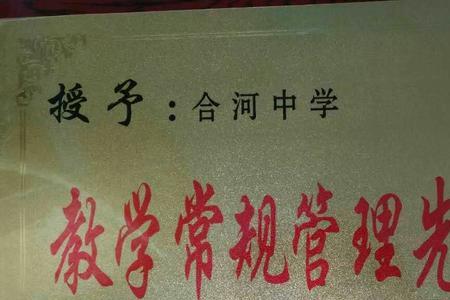 授予：合河中学
教学常规管理先